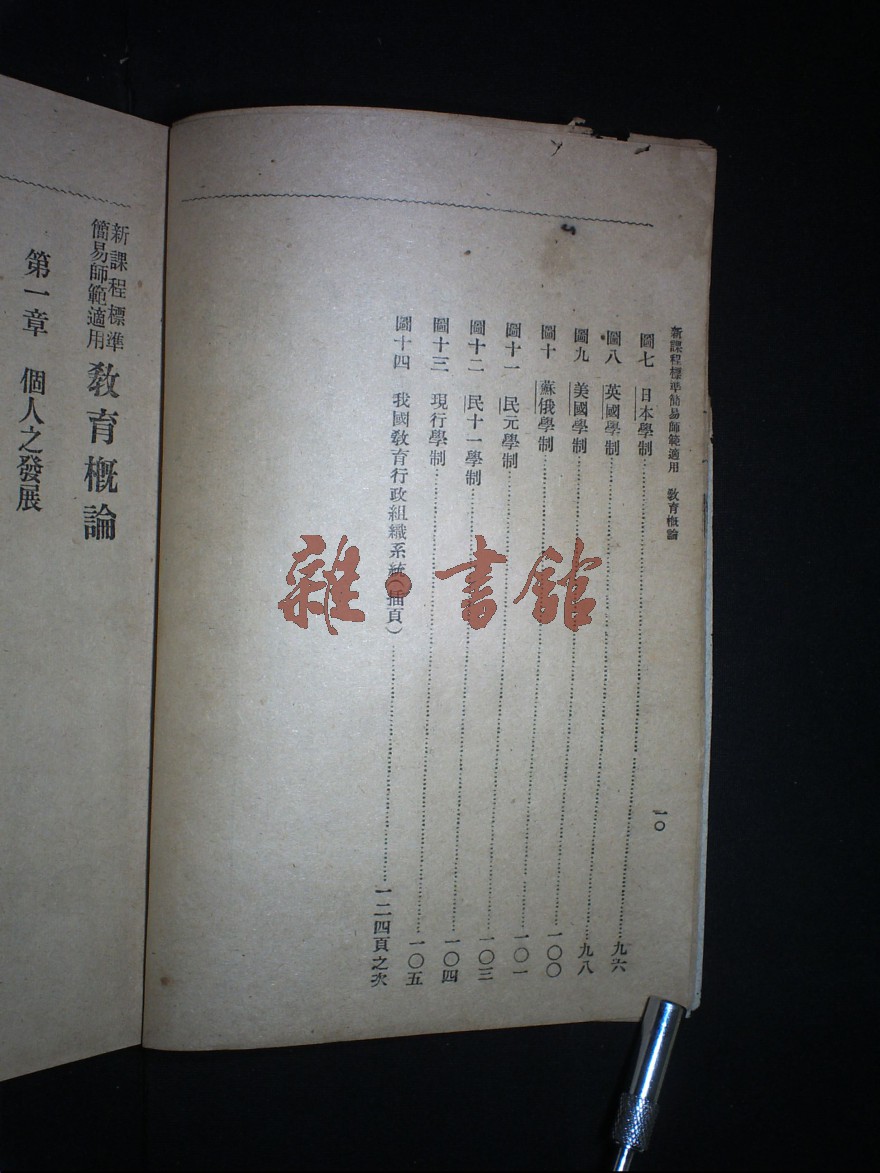 新課程標準簡易師範適用 教育概論 一〇
圖七 日本學制……九六
圖八 英國學制……九八
圖九 美國學制……一〇〇
圖十 蘇俄學制……一〇一
圖十一 民元學制……一〇三
圖十二 民十一學制……一〇四
圖十三 現行學制……一〇五
圖十四 我國敎育行政組織系統(插頁)……一二四頁之次
新課程標準
簡易師範適用
敎育概論
第一章 個人之發展
雜·書館